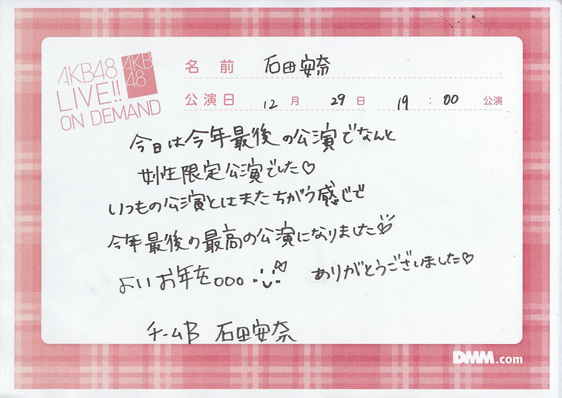 AKB48
LIVE!!
ON DEMAND
AKB
48
名前 石田安奈
公演日 12月29日 19:00 公演
今日は今年最後の公演でなんと
女性限定公演でした♡
いつもの公演とはまたちがう感じで
今年最後の最高の公演になりました
よいお年を。。。 ありがとうございました♡
チームB 石田安奈
DMM.com